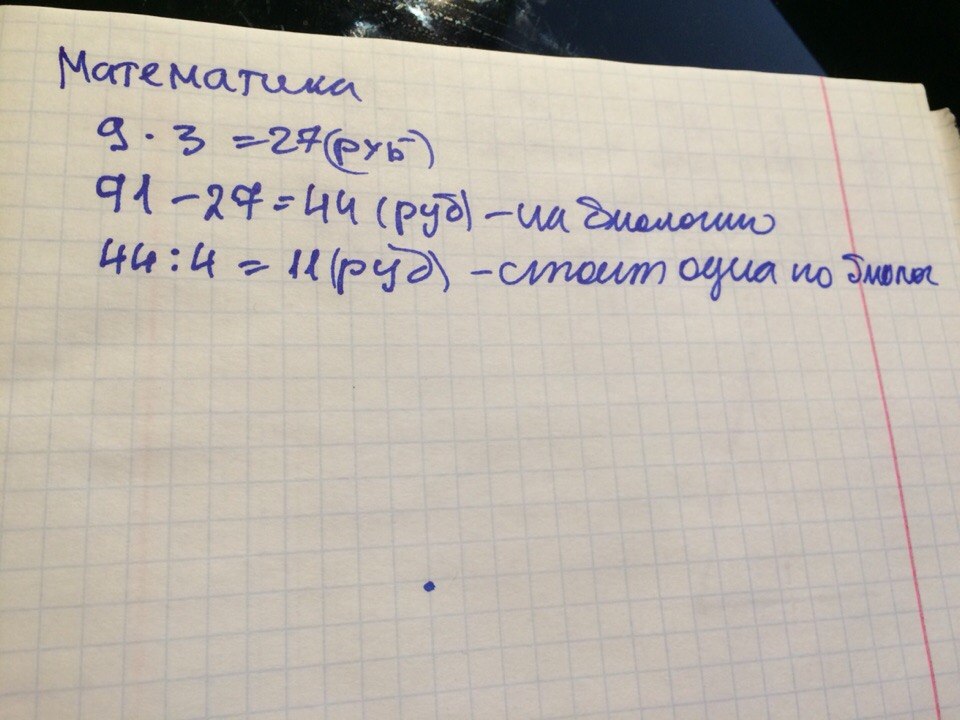 Математика
9 · 3 = 27 (руб)
91 - 27 = 44 (руб) - на биологию
44 : 4 = 11 (руб) - стоит одна по биолог